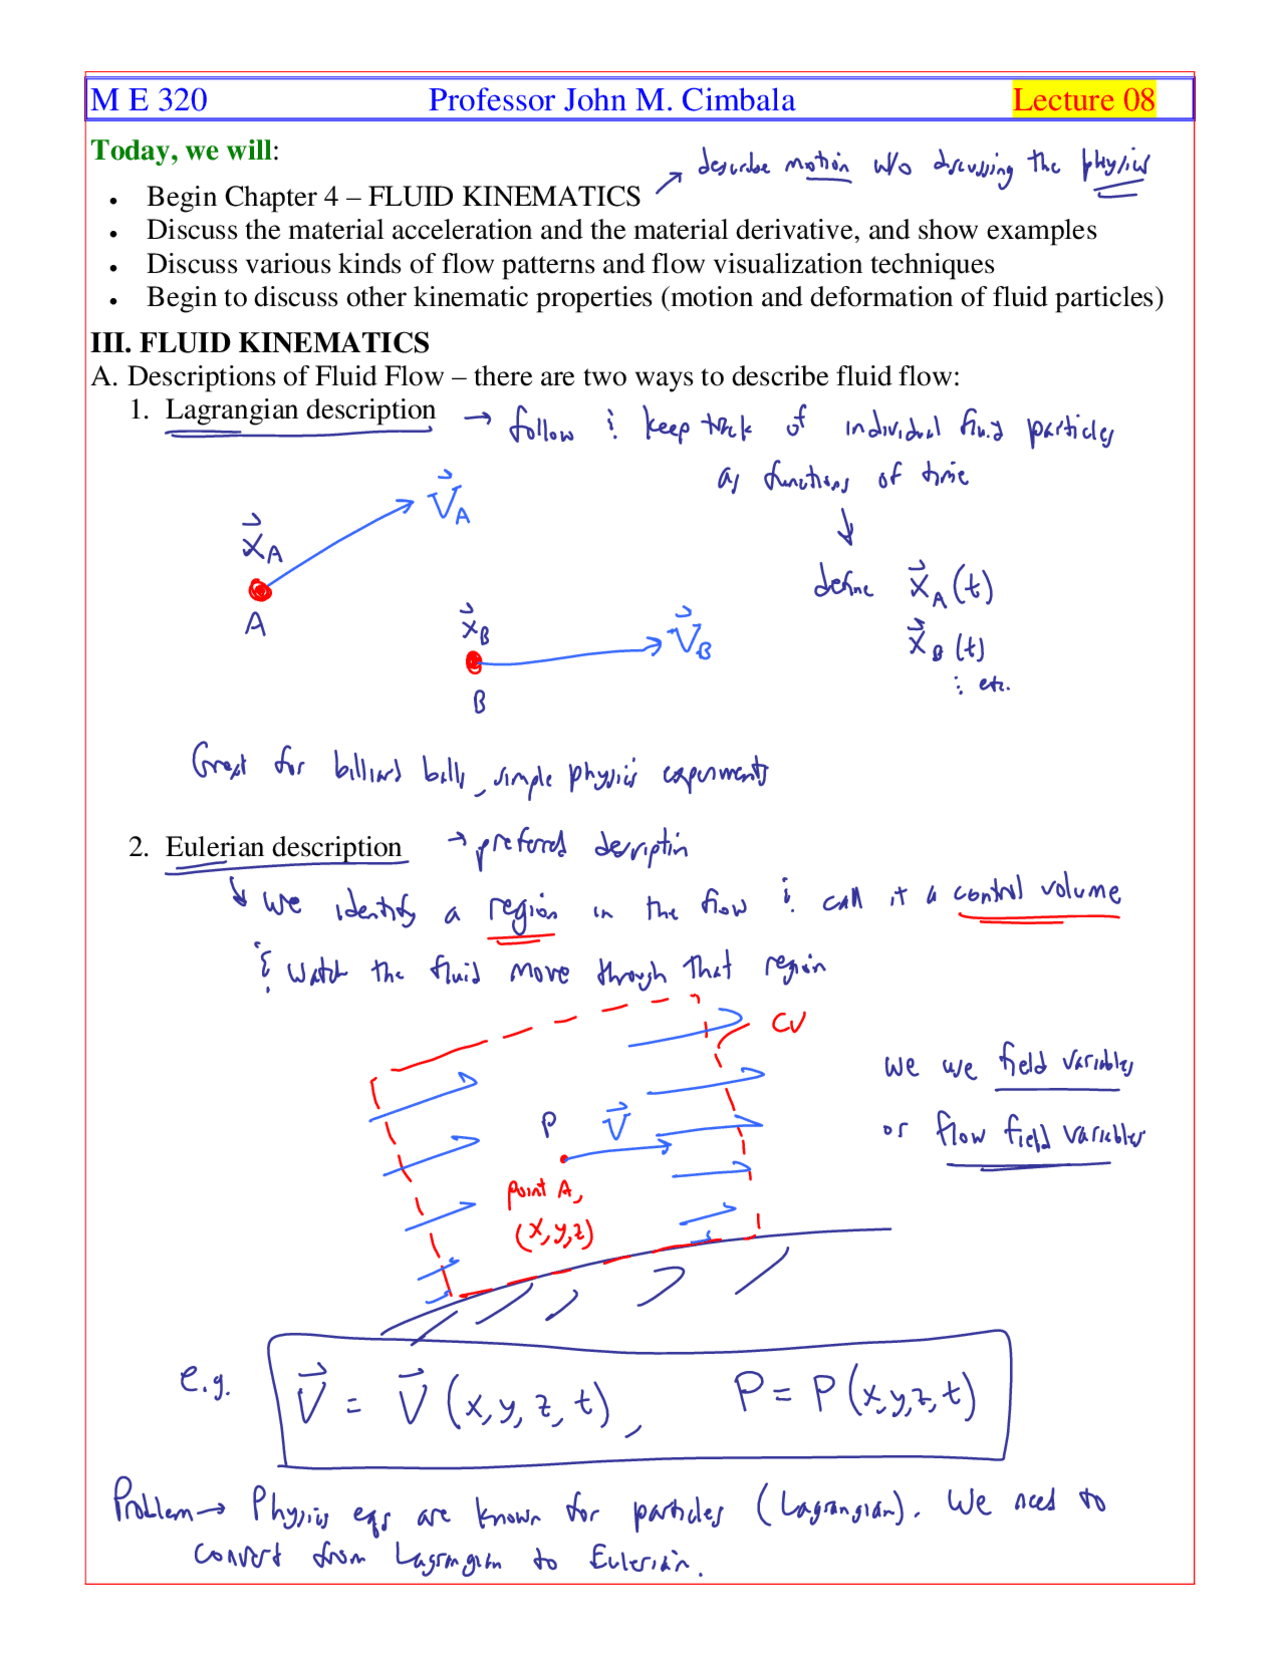 M E 320 Professor John M. Cimbala Lecture 08
Today, we will:
→ describe motion w/o discussing the physics
• Begin Chapter 4 – FLUID KINEMATICS
• Discuss the material acceleration and the material derivative, and show examples
• Discuss various kinds of flow patterns and flow visualization techniques
• Begin to discuss other kinematic properties (motion and deformation of fluid particles)
III. FLUID KINEMATICS
A. Descriptions of Fluid Flow – there are two ways to describe fluid flow:
1. Lagrangian description → follow & keep track of individual fluid particles
as functions of time
V⃗A
x⃗A
A
define x⃗A(t)
x⃗B
V⃗B
x⃗B(t)
⋮ etc.
B
Great for billiard balls, simple physics experiments
2. Eulerian description → preferred description
↳ we identify a region in the flow & call it a control volume
& watch the fluid move through that region
CV
We use field variables
P V⃗
or flow field variables
point A,
(x,y,z)
e.g. V⃗ = V⃗(x,y,z,t), P = P(x,y,z,t)
Problem → Physics eqs are known for particles (Lagrangian). We need to
convert from Lagrangian to Eulerian.